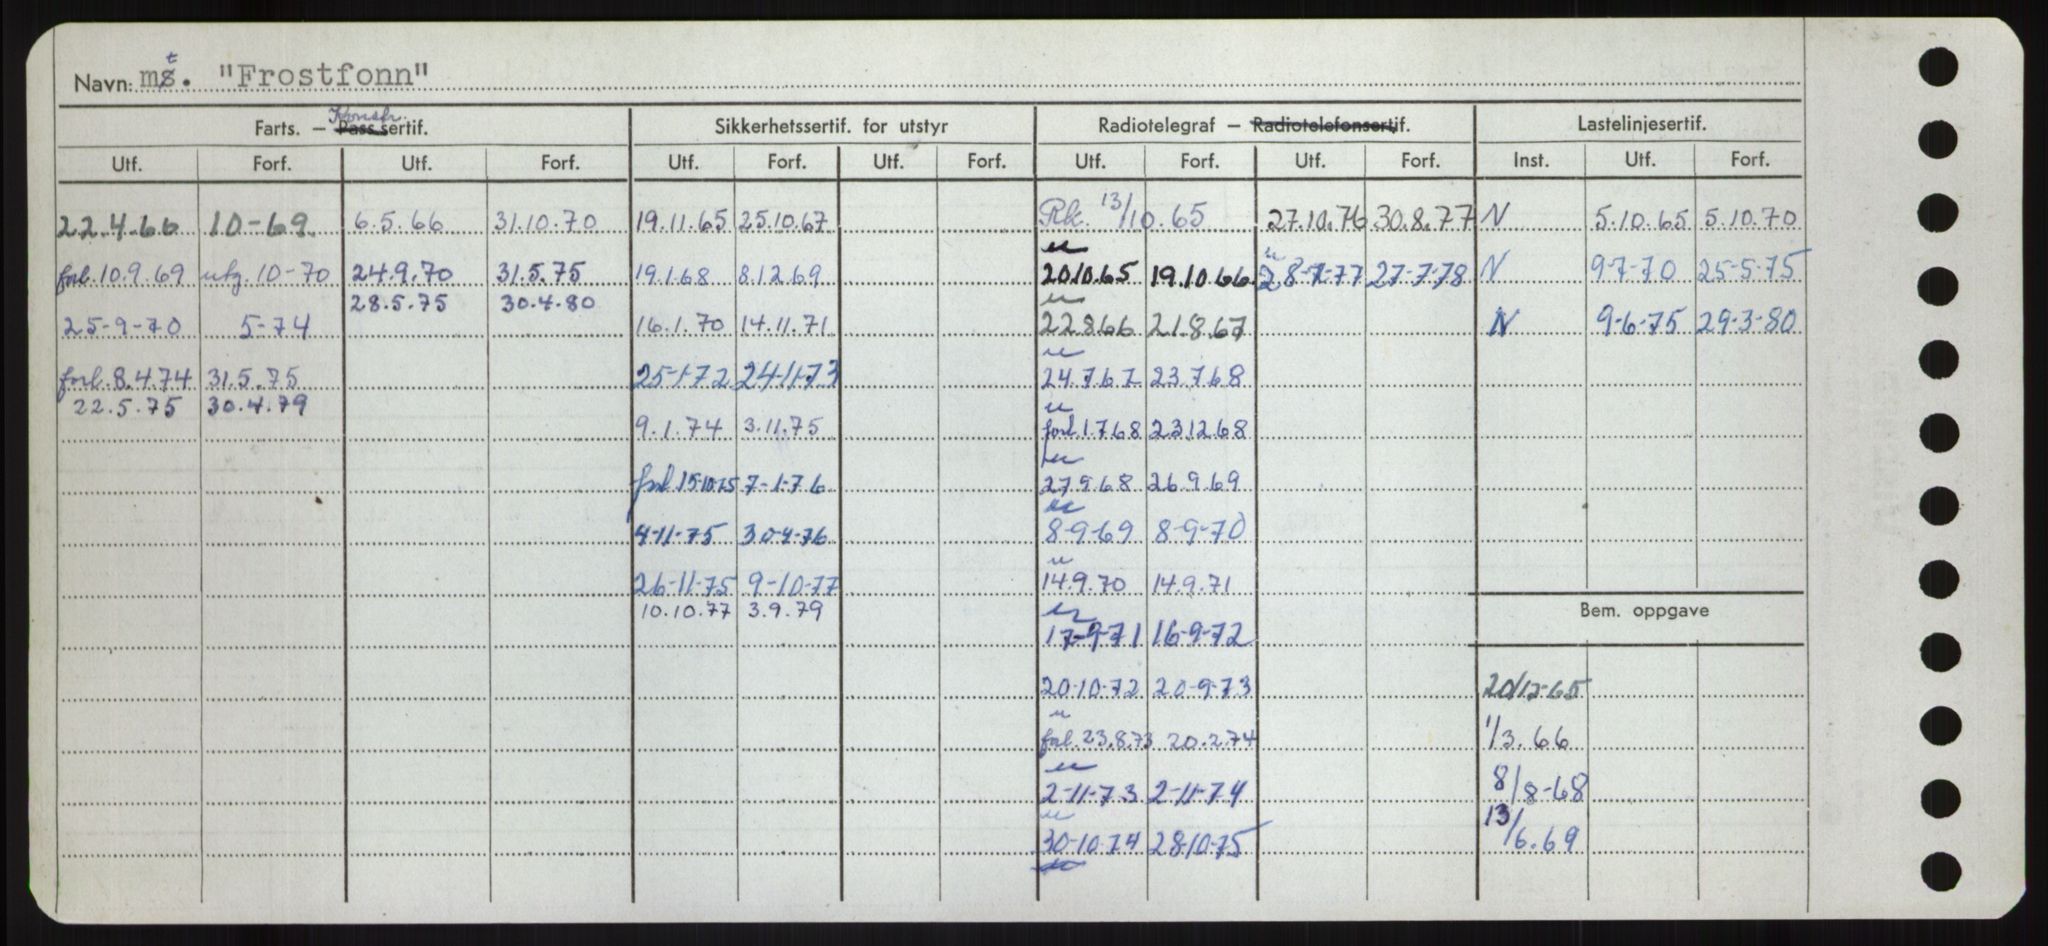 Navn: mt. "Frostfonn"
Farts. — Konstr. Passsertif. Sikkerhetssertif. for utstyr Radiotelegraf — Radiotelefonsertif. Lastelinjesertif.
Utf. Forf. Utf. Forf. Utf. Forf. Utf. Forf. Utf. Forf. Utf. Forf. Inst. Utf. Forf.
22.4.66 10-69. 6.5.66 31.10.70 19.11.65 25.10.67 Rk. 13/10.65 27.10.76 30.8.77 N 5.10.65 5.10.70
forl. 10.9.69 utg. 10-70 24.9.70 31.5.75 19.1.68 8.12.69 20.10.65 19.10.66 28-7-77 27-7-78 N 9-7-70 25-5-75
28.5.75 30.4.80
25-9-70 5-74 16.1.70 14.11.71 22.8.66 21.8.67 N 9-6-75 29-3-80
forl. 8.4.74 31.5.75 25-1-72 24-11-73 24.7.67 23.7.68
22.5.75 30.4.79
9.1.74 3.11.75 forl. 1.7.68 23.12.68
forl. 15-10-75 7-1-76 27.9.68 26.9.69
4-11-75 30-4-76 8-9-69 8-9-70
26-11-75 9-10-77 14.9.70 14.9.71
10.10.77 3.9.79
Bem. oppgave
17-9-71 16-9-72
20-10-72 20-9-73 20/12-65
forl. 23.8.73 20.2.74 1/3.66
2-11-73 2-11-74 8/8-68
30-10-74 28-10-75 13/6.69